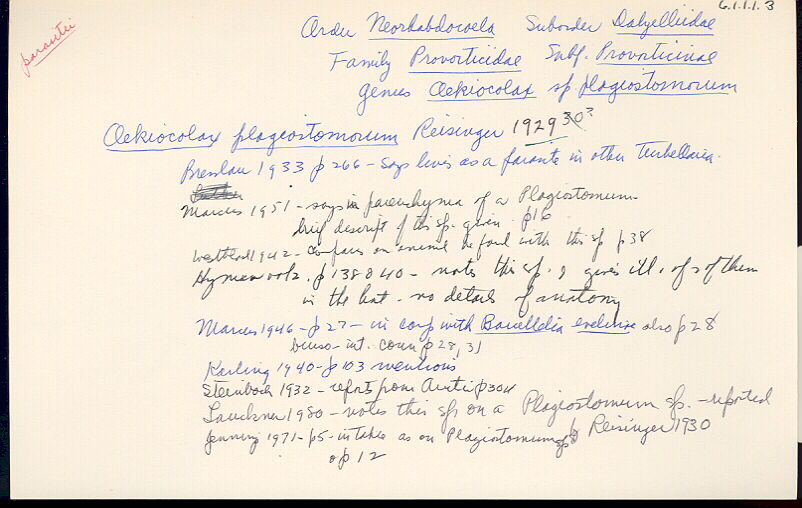 6.1.1.1.3
parasitic
Order Neorhabdocoela Suborder Dalyelliidae
Family Provorticidae Subf. Provorticinae
genus Oekiocolax sp plagiostomorum
Oekiocolax plagiostomorum Reisinger 1929 30?
Bresslau 1933 p 266 - says lives as a parasite in other Turbellaria.
Marcus 1951 - says in parenchyma of a Plagiostomum
brief descript of this sp. given. p16
Westblad 1942 - compares an animal he found with this sp p 38
Hyman vol 2. p 138 & 40 - notes this sp. & gives ill. of 2 of them
in the host - no details of anatomy
Marcus 1946 - p 27 - in comp with Baicellia evelinae also p 28
burso-int. conn p 28, 31
Karling 1940 - p 103 mentions
Steinböck 1932 - reports from Arctic p 304
Lauckner 1980 - notes this sp on a Plagiostomum sp. - reported
Jennings 1971 - p5 - in table as on Plagiostomum sp by Reisinger 1930
op 12